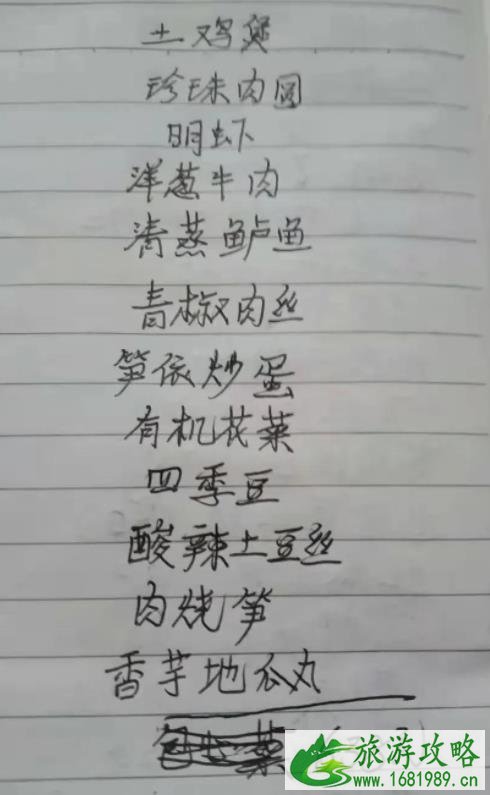 土鸡煲
珍珠肉圆
明虾
洋葱牛肉
清蒸鲈鱼
青椒肉丝
笋依炒蛋
有机花菜
四季豆
酸辣土豆丝
肉烧笋
香芋地瓜丸
旅游攻略
www.1681989.cn